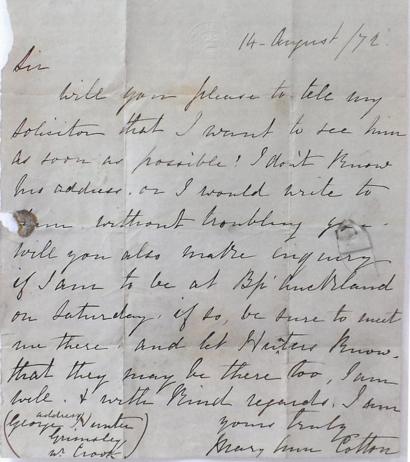 14 - August / 72
Sir
Will you please to tell my
soliciter that I want to see him
as soon as possible! I don't Know
his address. or I would write to
him without troubling you -
Will you also make inquiry
if I am to be at Bp Auckland
on Saturday. if so, be sure to meet
me there. and let Hunters Know.
that they may be there too, I am
well. & with Kind regards. I am
yours truly
Mary Ann Cotton
(address
George Hunter
Grimsley
w Crook)